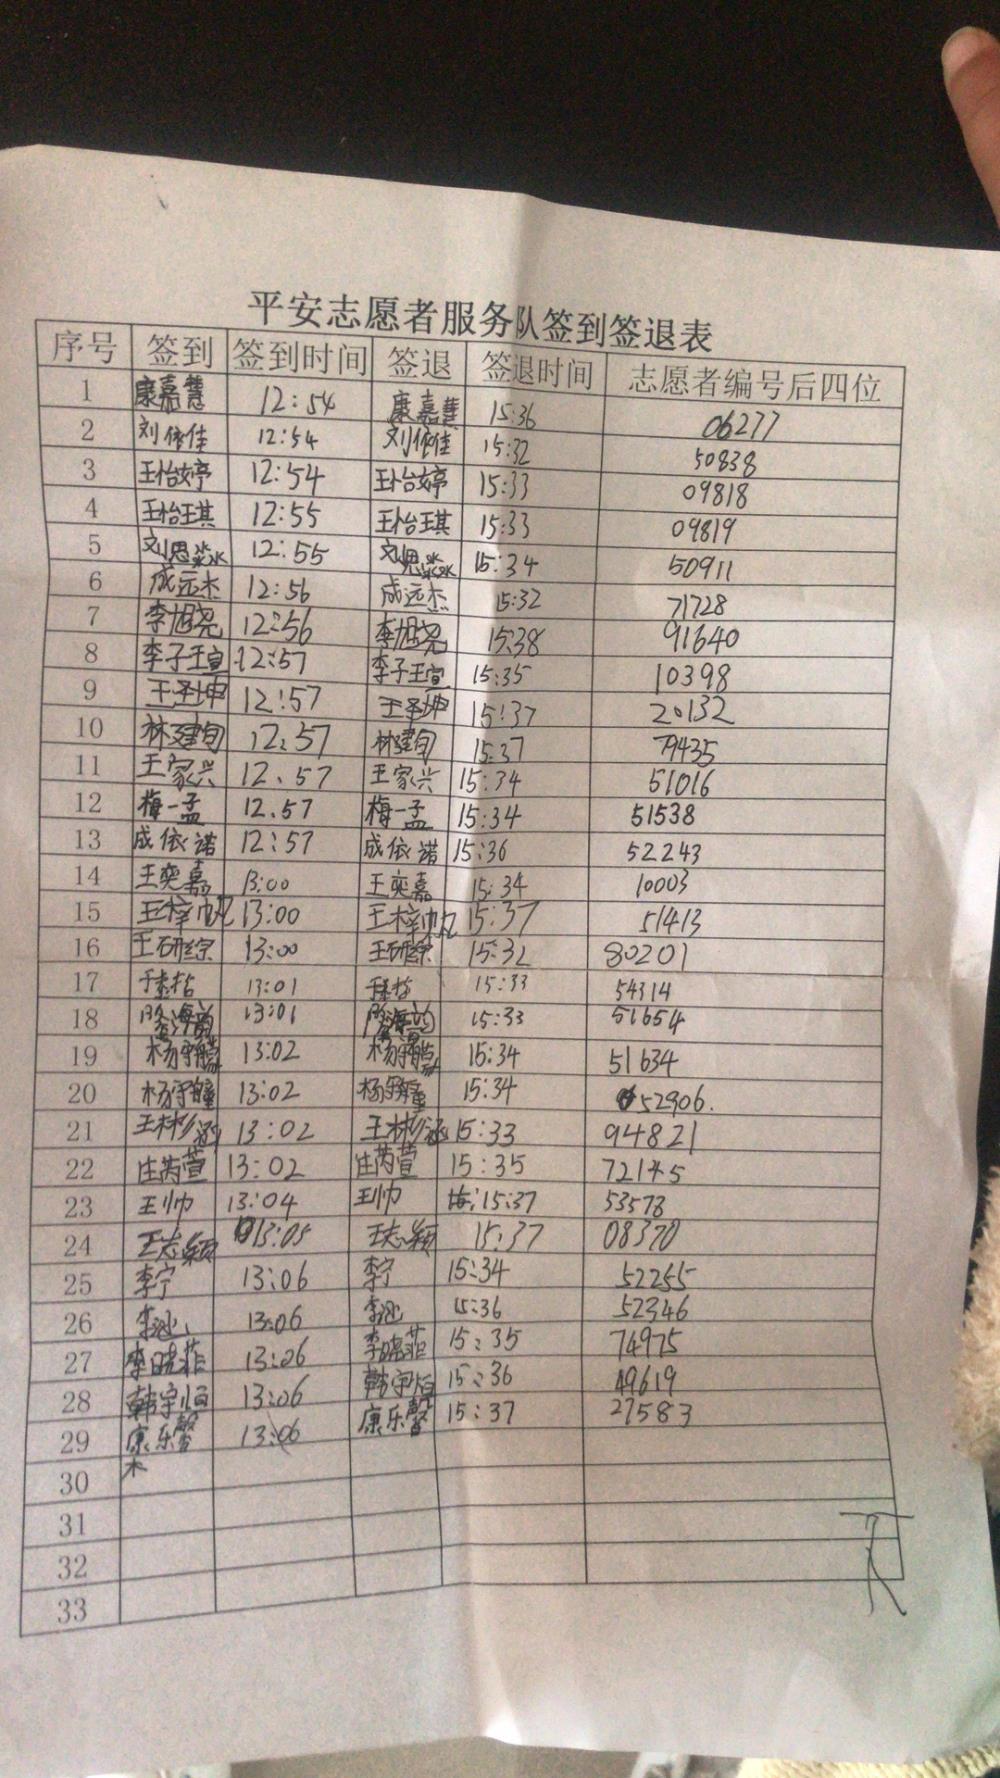 平安志愿者服务队签到签退表
序号 签到 签到时间 签退 签退时间 志愿者编号后四位
1 康嘉慧 12:54 康嘉慧 15:36 06277
2 刘依佳 12:54 刘依佳 15:32 50838
3 王怡婷 12:54 王怡婷 15:33 09818
4 王怡琪 12:55 王怡琪 15:33 09819
5 刘思淼 12:55 刘思淼 15:34 50911
6 成远杰 12:56 成远杰 15:32 71728
7 李旭尧 12:56 李旭尧 15:38 91640
8 李子瑄 12:57 李子瑄 15:35 10398
9 王圣坤 12:57 王圣坤 15:37 20132
10 林建旬 12:57 林建旬 15:37 79435
11 王家兴 12.57 王家兴 15:34 51016
12 梅一孟 12.57 梅一孟 15:34 51538
13 成依诺 12:57 成依诺 15:36 52243
14 王奕嘉 13:00 王奕嘉 15:34 10003
15 王梓帆 13:00 王梓帆 15:37 51413
16 王研综 13:00 王研综 15:32 80201
17 13:01 15:33 54314
18 13:01 15:33 51654
19 13:02 15:34 51634
20 13:02 15:34 52906.
21 王彬涵 13:02 王彬涵 15:33 94821
22 庄芮萱 13:02 庄芮萱 15:35 72145
23 王帅 13:04 王帅 15:37 53578
24 王志颖 13:05 王志颖 15:37 08370
25 李宁 13:06 李宁 15:34 52255
26 13:06 15:36 52346
27 李晓菲 13:06 李晓菲 15:35 74975
28 韩宇恒 13:06 韩宇恒 15:36 49619
29 康乐馨 13:06 康乐馨 15:37 27583
30
31
32
33